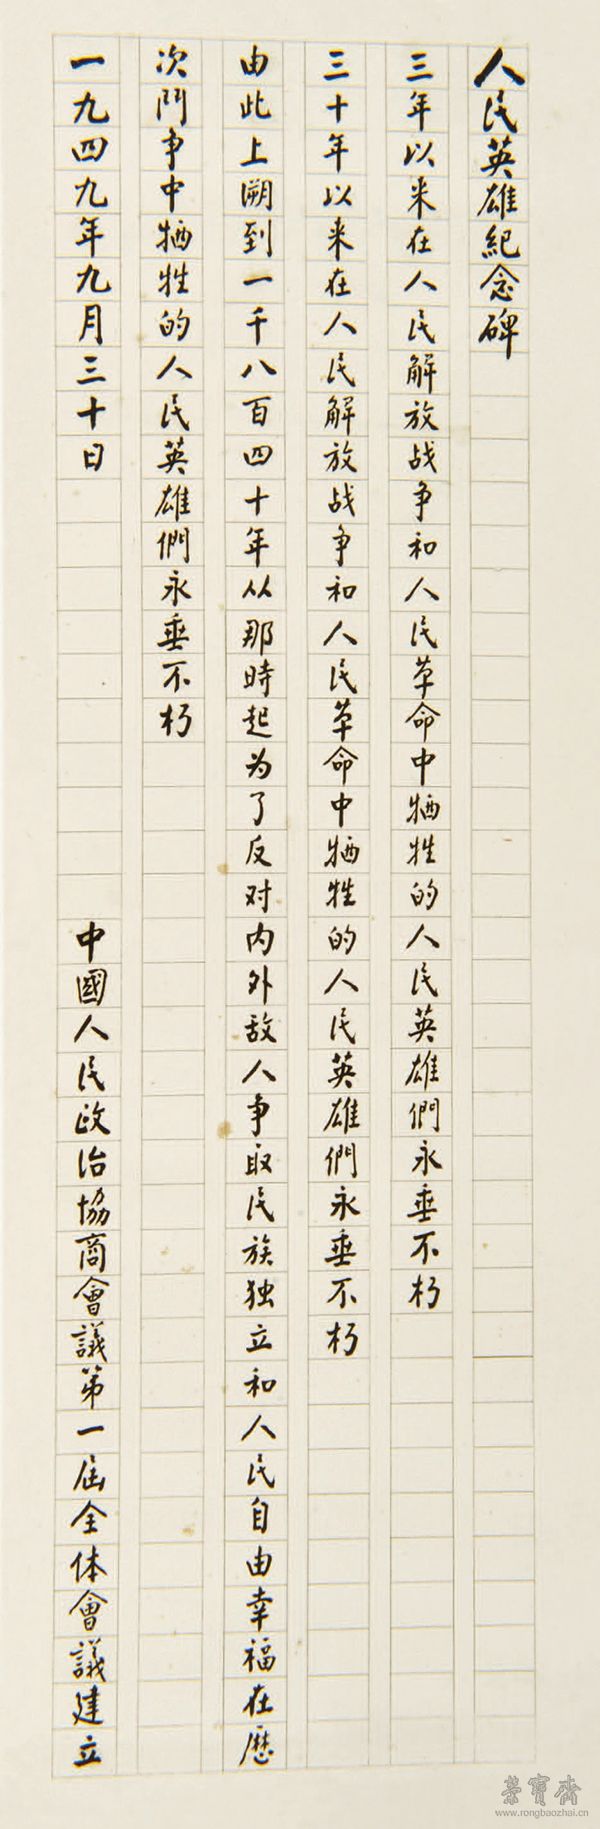 人民英雄紀念碑
三年以来在人民解放战争和人民革命中牺牲的人民英雄們永垂不朽
三十年以来在人民解放战争和人民革命中牺牲的人民英雄們永垂不朽
由此上溯到一千八百四十年从那時起为了反对内外敌人争取民族独立和人民自由幸福在歷
次鬥争中牺牲的人民英雄們永垂不朽
一九四九年九月三十日
中國人民政治協商會議第一届全体會議建立
榮寶齋
www.rongbaozhai.cn